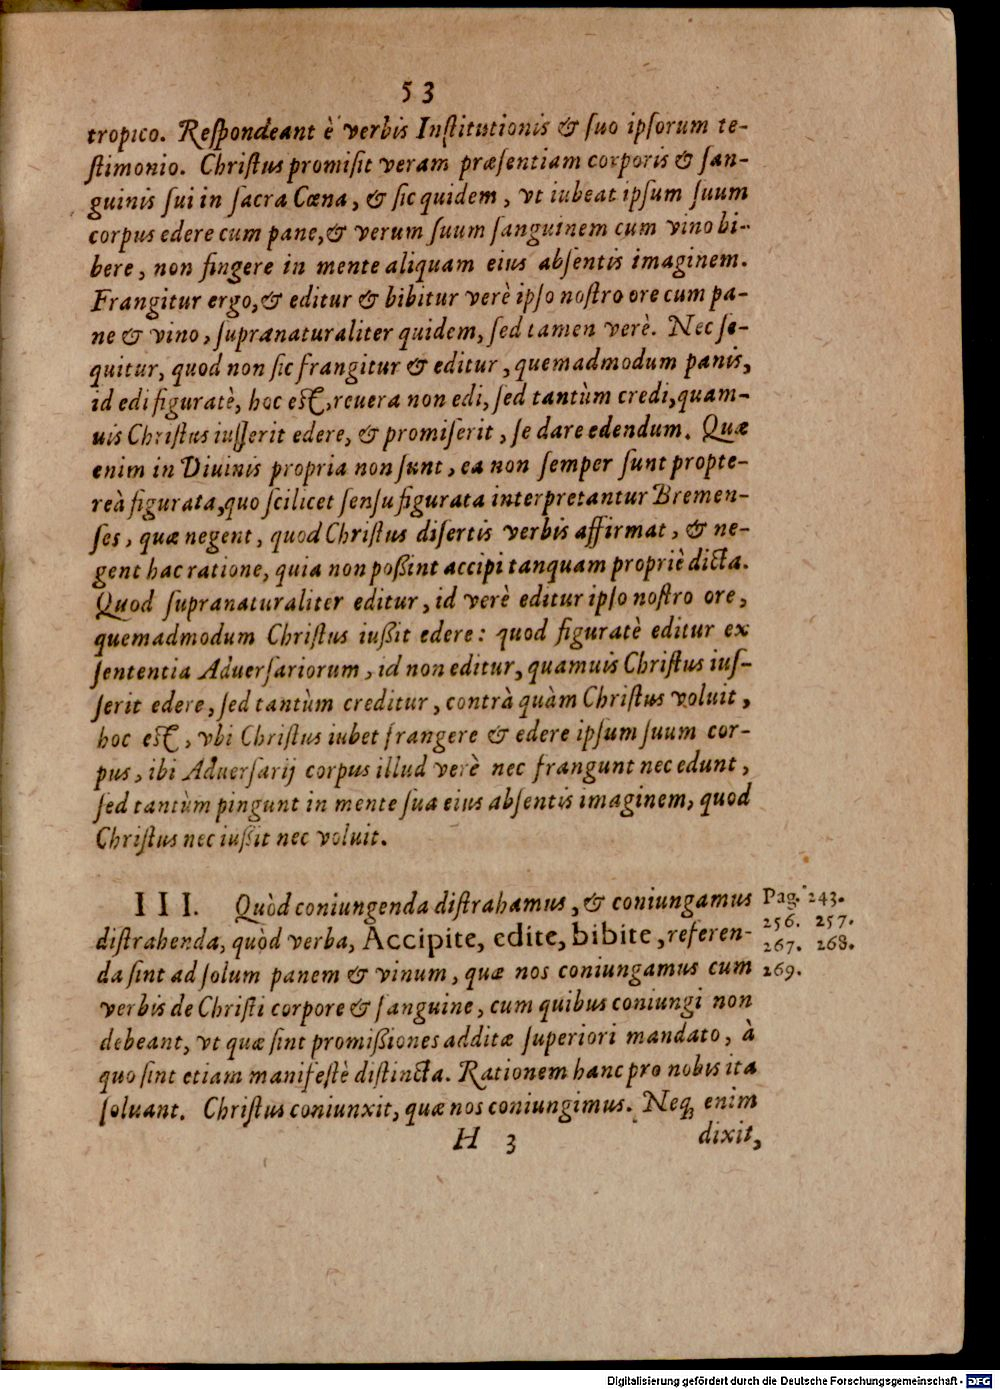 53
tropico. Respondeant è verbis Institutionis & suo ipsorum te-
stimonio. Christus promisit veram præsentiam corporis & san-
guinis sui in sacra Cœna, & sic quidem, vt iubeat ipsum suum
corpus edere cum pane, & verum suum sanguinem cum vino bi-
bere, non fingere in mente aliquam eius absentis imaginem.
Frangitur ergo, & editur & bibitur verè ipso nostro ore cum pa-
ne & vino, supranaturaliter quidem, sed tamen verè. Nec se-
quitur, quod non sic frangitur & editur, quemadmodum panis,
id edi figuratè, hoc est, reuera non edi, sed tantùm credi, quam-
uis Christus iusserit edere, & promiserit, se dare edendum. Quæ
enim in Diuinis propria non sunt, ea non semper sunt propte-
reà figurata, quo scilicet sensu figurata interpretantur Bremen-
ses, quæ negent, quod Christus disertis verbis affirmat, & ne-
gent hac ratione, quia non poßint accipi tanquam propriè dicta.
Quod supranaturaliter editur, id verè editur ipso nostro ore,
quemadmodum Christus iußit edere: quod figuratè editur ex
sententia Aduersariorum, id non editur, quamuis Christus ius-
serit edere, sed tantùm creditur, contrà quàm Christus voluit,
hoc est, vbi Christus iubet frangere & edere ipsum suum cor-
pus, ibi Aduersarij corpus illud verè nec frangunt nec edunt,
sed tantùm pingunt in mente sua eius absentis imaginem, quod
Christus nec iußit nec voluit.
III. Quòd coniungenda distrahamus, & coniungamus
distrahenda, quòd verba, Accipite, edite, bibite, referen-
da sint ad solum panem & vinum, quæ nos coniungamus cum
verbis de Christi corpore & sanguine, cum quibus coniungi non
debeant, vt quæ sint promißiones additæ superiori mandato, à
quo sint etiam manifestè distincta. Rationem hanc pro nobis ita
soluant. Christus coniunxit, quæ nos coniungimus. Neq; enim
H 3 dixit,
Pag. 243.
256. 257.
267. 268.
269.
Digitalisierung gefördert durch die Deutsche Forschungsgemeinschaft - DFG